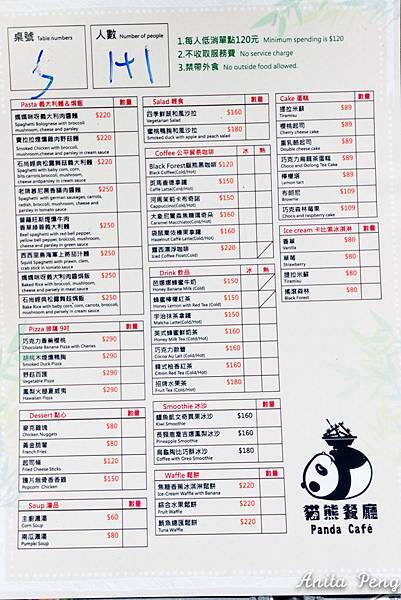 桌號 Table numbers
5
人數 Number of people
1+1
1.每人低消單點120元 Minimum spending is $120
2.不收取服務費 No service charge
3.禁帶外食 No outside food allowed.
Pasta 義大利麵&焗飯 數量
媽媽咪呀義大利肉醬麵 $220
Spaghetti Bolognese with broccoli
mushroom,cheese and parsley
$220
Smoked Chicken with broccoli,
mushroom,cheese and parsley in cream sauce
石尚經典拉圖野菇義大利麵 $210
Spaghetti with baby corn, corn,
$250
Spaghetti with german sausages, carrots,
radish, mushroom, broccoli, cheese and
parsley in tomato sauce
$250
Beef spaghetti with red bell pepper,
yellow bell pepper, broccoli, mushroom,
cheese and parsley in tomato sauce
$250
Squid Spaghetti with prawn, clam,
crab stick in tomato sauce
媽媽咪呀義大利肉醬焗飯 $250
Baked Rice with broccoli, mushroom
and parsley in meat sauce
$250
Bake Rice with baby corn, corn, carrots, broccoli,
mushroom and parsley in cream sauce
Pizza 披薩 9吋 數量
巧克力香蕉櫻桃 $290
Chocolate Banana Pizza with Cheries
胡桃木煙燻鴨胸 $290
Smoked Duck Pizza
野菇百匯 $290
Vegetable Pizza
鳳梨火腿夏威夷 $290
Hawaiian Pizza
Dessert 點心 數量
麥克雞塊 $80
Chicken Nuggets
黃金脆薯 $80
French Fries
起司條 $120
Fried Cheese Sticks
$80
Popcorn Chicken
Soup 湯品 數量
主廚濃湯 $60
Corn Soup
南瓜濃湯 $80
Pumpki Soup
Salad 輕食 數量
四季鮮蔬和風沙拉 $160
Vegetarian Salad
蜜桃鴨胸和風沙拉 $180
Smoked duck with apple and peach salad
Coffee 公平貿易咖啡 冰 熱
Black Forest貓熊黑咖啡 $120
Black Coffee
斑馬奮達拿鐵 $150
Caffe Latte(Cold/Hot)
河馬茉莉卡布奇諾 $150
Cappuccino(Cold/Hot)
大象尼爾森焦糖瑪奇朵 $160
Caramel Macchiato(Cold/Hot)
袋鼠萊依榛果拿鐵 $160
Hazelnut Caffe Latte(Cold/Hot)
露西漂浮咖啡 $220
Iced Coffee Float(Cold)
Drink 飲品 冰 熱
芭娜娜蜂蜜牛奶 $150
Honey Banana Milk (Cold)
蜂蜜檸檬紅茶 $150
Honey Lemon with Red Tea (Cold)
宇治抹茶拿鐵 $150
Matcha Latte(Cold/Hot)
英式蜂蜜鮮奶茶 $160
Honey Milk Tea(Cold/Hot)
巧克力歐蕾 $160
Cocoa Au Lait (Cold/Hot)
韓式柚香紅茶 $160
Citron Red Tea (Cold/Hot)
招牌水果茶 $180
Fruit Tea (Cold/Hot)
Smoothie 冰沙 數量
鱷魚凱文奇異果冰沙 $160
Kiwi Smoothie
長頸鹿喬吉娜鳳梨冰沙 $160
Pineapple Smoothie
烏龜陶比巧酥冰沙 $180
Coffee with Oreo Smoothie
Waffle 鬆餅 數量
焦糖香蕉冰淇淋鬆餅 $220
Ice-Cream Waffle with Banana
綜合水果鬆餅 $220
Fruit Waffle
鮪魚總匯鬆餅 $220
Tuna Waffle
Cake 蛋糕 數量
提拉米蘇 $89
Tiremisu
櫻桃起司 $89
Cherry cheese cake
重乳酪起司 $89
Double cheese cake
巧克力烏龍茶蛋糕 $89
Choco and Oolong Tea Cake
檸檬塔 $89
Lemon tart
布朗尼 $89
Brownie
巧克森林莓果 $109
Choco and respberry cake
Ice cream 卡比索冰淇淋 數量
香草 $80
Vanilla
草莓 $80
Strawberry
提拉米蘇 $80
Tiramisu
搖滾森林 $80
Black Forest
貓熊餐廳
Panda Café
Anita Peng